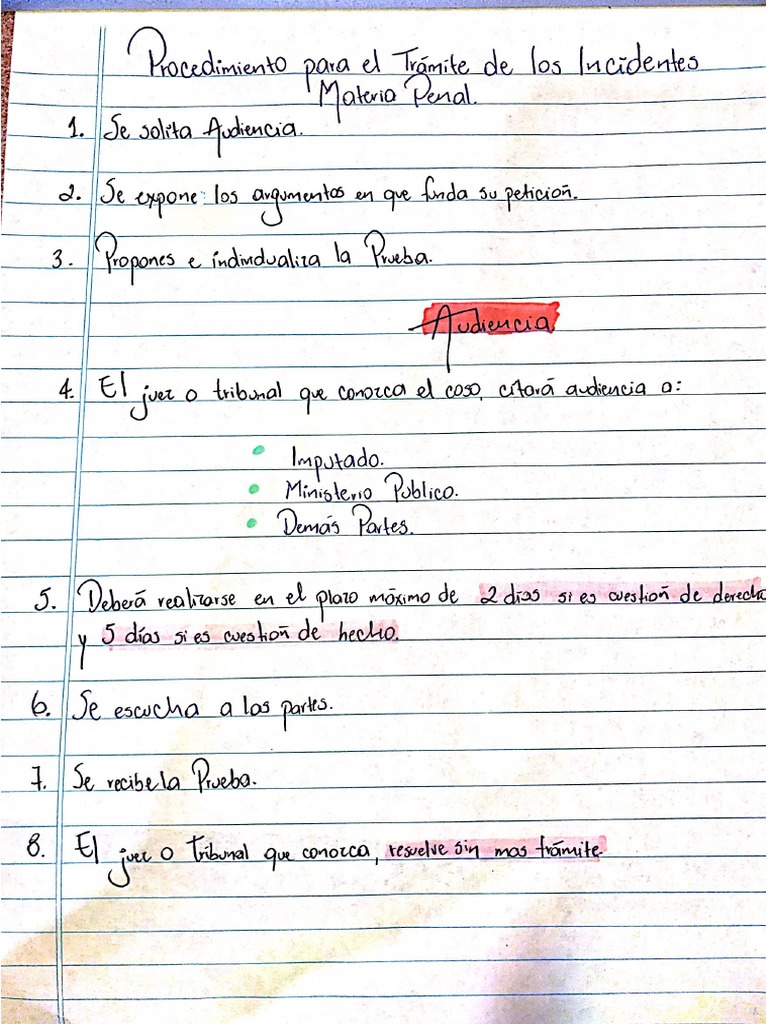 Procedimiento para el Trámite de los Incidentes
Materia Penal.
1. Se solita Audiencia.
2. Se expone los argumentos en que funda su petición.
3. Propones e individualiza la Prueba.
Audiencia
4. El juez o tribunal que conozca el caso, citará audiencia a:
• Imputado.
• Ministerio Publico.
• Demás Partes.
5. Deberá realizarse en el plazo máximo de 2 días si es cuestión de derecho
y 5 días si es cuestión de hecho.
6. Se escucha a las partes.
7. Se recibe la Prueba.
8. El juez o Tribunal que conozca, resuelve sin mas trámite.